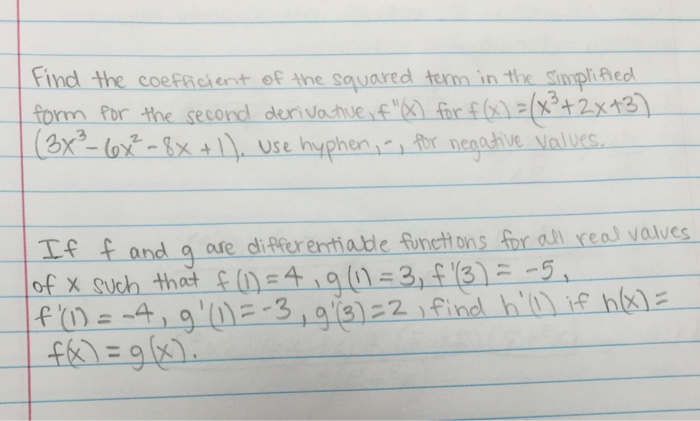 Find the coefficient of the squared term in the simplified
form for the second derivative, f"(x) for f(x) = (x³+2x+3)
(3x³-6x²-8x+1). Use hyphen, -, for negative values.
If f and g are differentiable functions for all real values
of x such that f(1)=4, g(1)=3, f'(3)=-5,
f'(1)=-4, g'(1)=-3, g'(3)=2, find h'(1) if h(x)=
f(x)=g(x).